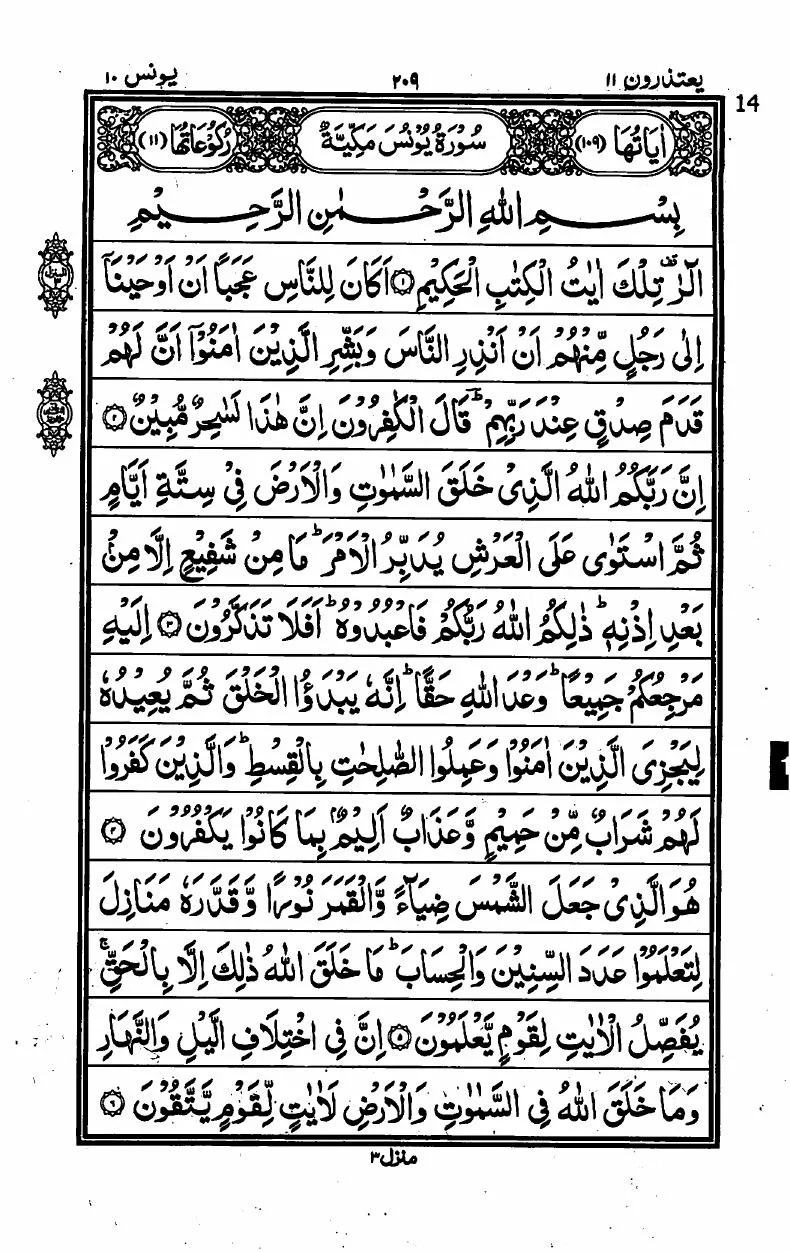 یعتذرون ۱۱
۲۰۹
یونس ۱۰
14
اٰیَاتُهَا (۱۰۹)
سُوْرَةُ يُوْنُسَ مَكِّيَّةٌ
رُكُوْعَاتُهَا (۱۱)
بِسْمِ اللّٰهِ الرَّحْمٰنِ الرَّحِيْمِ
الٓرٰ ۟ تِلْكَ اٰيٰتُ الْكِتٰبِ الْحَكِيْمِ ۝۱ اَكَانَ لِلنَّاسِ عَجَبًا اَنْ اَوْحَيْنَاۤ
اِلٰى رَجُلٍ مِّنْهُمْ اَنْ اَنْذِرِ النَّاسَ وَبَشِّرِ الَّذِيْنَ اٰمَنُوْۤا اَنَّ لَهُمْ
قَدَمَ صِدْقٍ عِنْدَ رَبِّهِمْ ؕ قَالَ الْكٰفِرُوْنَ اِنَّ هٰذَا لَسٰحِرٌ مُّبِيْنٌ ۝۲
اِنَّ رَبَّكُمُ اللّٰهُ الَّذِيْ خَلَقَ السَّمٰوٰتِ وَالْاَرْضَ فِيْ سِتَّةِ اَيَّامٍ
ثُمَّ اسْتَوٰى عَلَى الْعَرْشِ يُدَبِّرُ الْاَمْرَ ؕ مَا مِنْ شَفِيْعٍ اِلَّا مِنْۢ
بَعْدِ اِذْنِهٖ ؕ ذٰلِكُمُ اللّٰهُ رَبُّكُمْ فَاعْبُدُوْهُ ؕ اَفَلَا تَذَكَّرُوْنَ ۝۳ اِلَيْهِ
مَرْجِعُكُمْ جَمِيْعًا ؕ وَعْدَ اللّٰهِ حَقًّا ؕ اِنَّهٗ يَبْدَؤُا الْخَلْقَ ثُمَّ يُعِيْدُهٗ
لِيَجْزِيَ الَّذِيْنَ اٰمَنُوْا وَعَمِلُوا الصّٰلِحٰتِ بِالْقِسْطِ ؕ وَالَّذِيْنَ كَفَرُوْا
لَهُمْ شَرَابٌ مِّنْ حَمِيْمٍ وَّعَذَابٌ اَلِيْمٌۢ بِمَا كَانُوْا يَكْفُرُوْنَ ۝۴
هُوَ الَّذِيْ جَعَلَ الشَّمْسَ ضِيَآءً وَّالْقَمَرَ نُوْرًا وَّقَدَّرَهٗ مَنَازِلَ
لِتَعْلَمُوْا عَدَدَ السِّنِيْنَ وَالْحِسَابَ ؕ مَا خَلَقَ اللّٰهُ ذٰلِكَ اِلَّا بِالْحَقِّ ۚ
يُفَصِّلُ الْاٰيٰتِ لِقَوْمٍ يَّعْلَمُوْنَ ۝۵ اِنَّ فِي اخْتِلَافِ الَّيْلِ وَالنَّهَارِ
وَمَا خَلَقَ اللّٰهُ فِي السَّمٰوٰتِ وَالْاَرْضِ لَاٰيٰتٍ لِّقَوْمٍ يَّتَّقُوْنَ ۝۶
منزل ۳